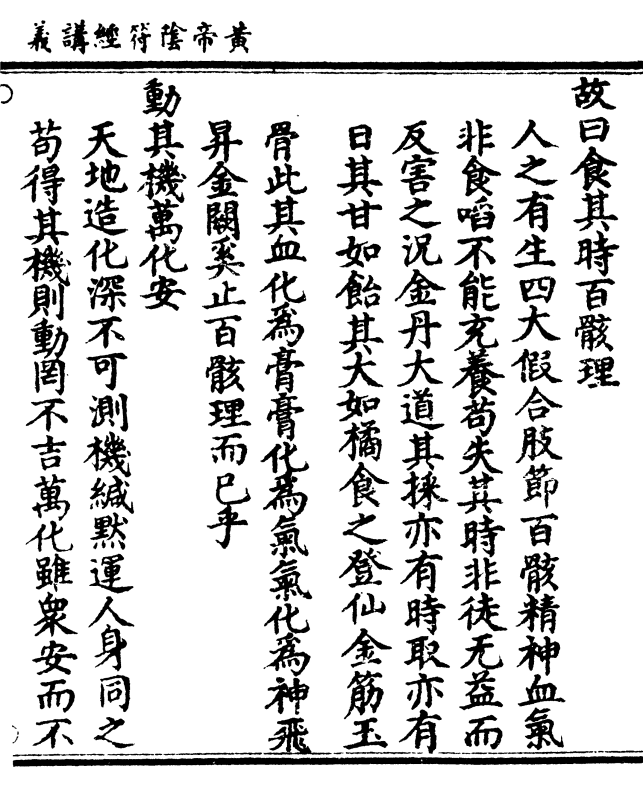 黃帝陰符經講義
故曰食其時百骸理
人之有生四大假合肢節百骸精神血氣
非食㗖不能充養苟失其時非徒无益而
反害之况金丹大道其採亦有時取亦有
日其甘如飴其大如橘食之登仙金筋玉
骨此其血化爲膏膏化爲氣氣化爲神飛
昇金闕奚止百骸理而已乎
動其機萬化安
天地造化深不可測機緘默運人身同之
苟得其機則動罔不吉萬化雖衆安而不